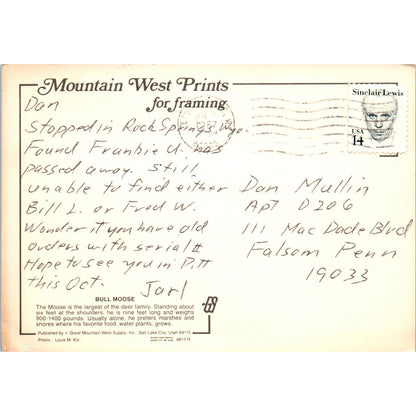 Mountain West Prints
for framing
Sinclair Lewis
USA
14
Dan
Stopped in Rock Springs, Wyo.
Found Frankie U. has
passed away. Still
unable to find either
Bill L. or Fred W.
Wonder if you have old
orders with serial #
Hope to see you in Pitt
this Oct.
Jarl
Dan Mullin
Apt D206
111 Mac Dade Blvd
Falsom Penn
19033
BULL MOOSE
The Moose is the largest of the deer family. Standing about
six feet at the shoulders, he is nine feet long and weighs
900-1400 pounds. Usually alone, he prefers marshes and
shores where his favorite food, water plants, grows.
Published by © Great Mountain West Supply, Inc., Salt Lake City, Utah 84115
Photo: Louis M. Kis